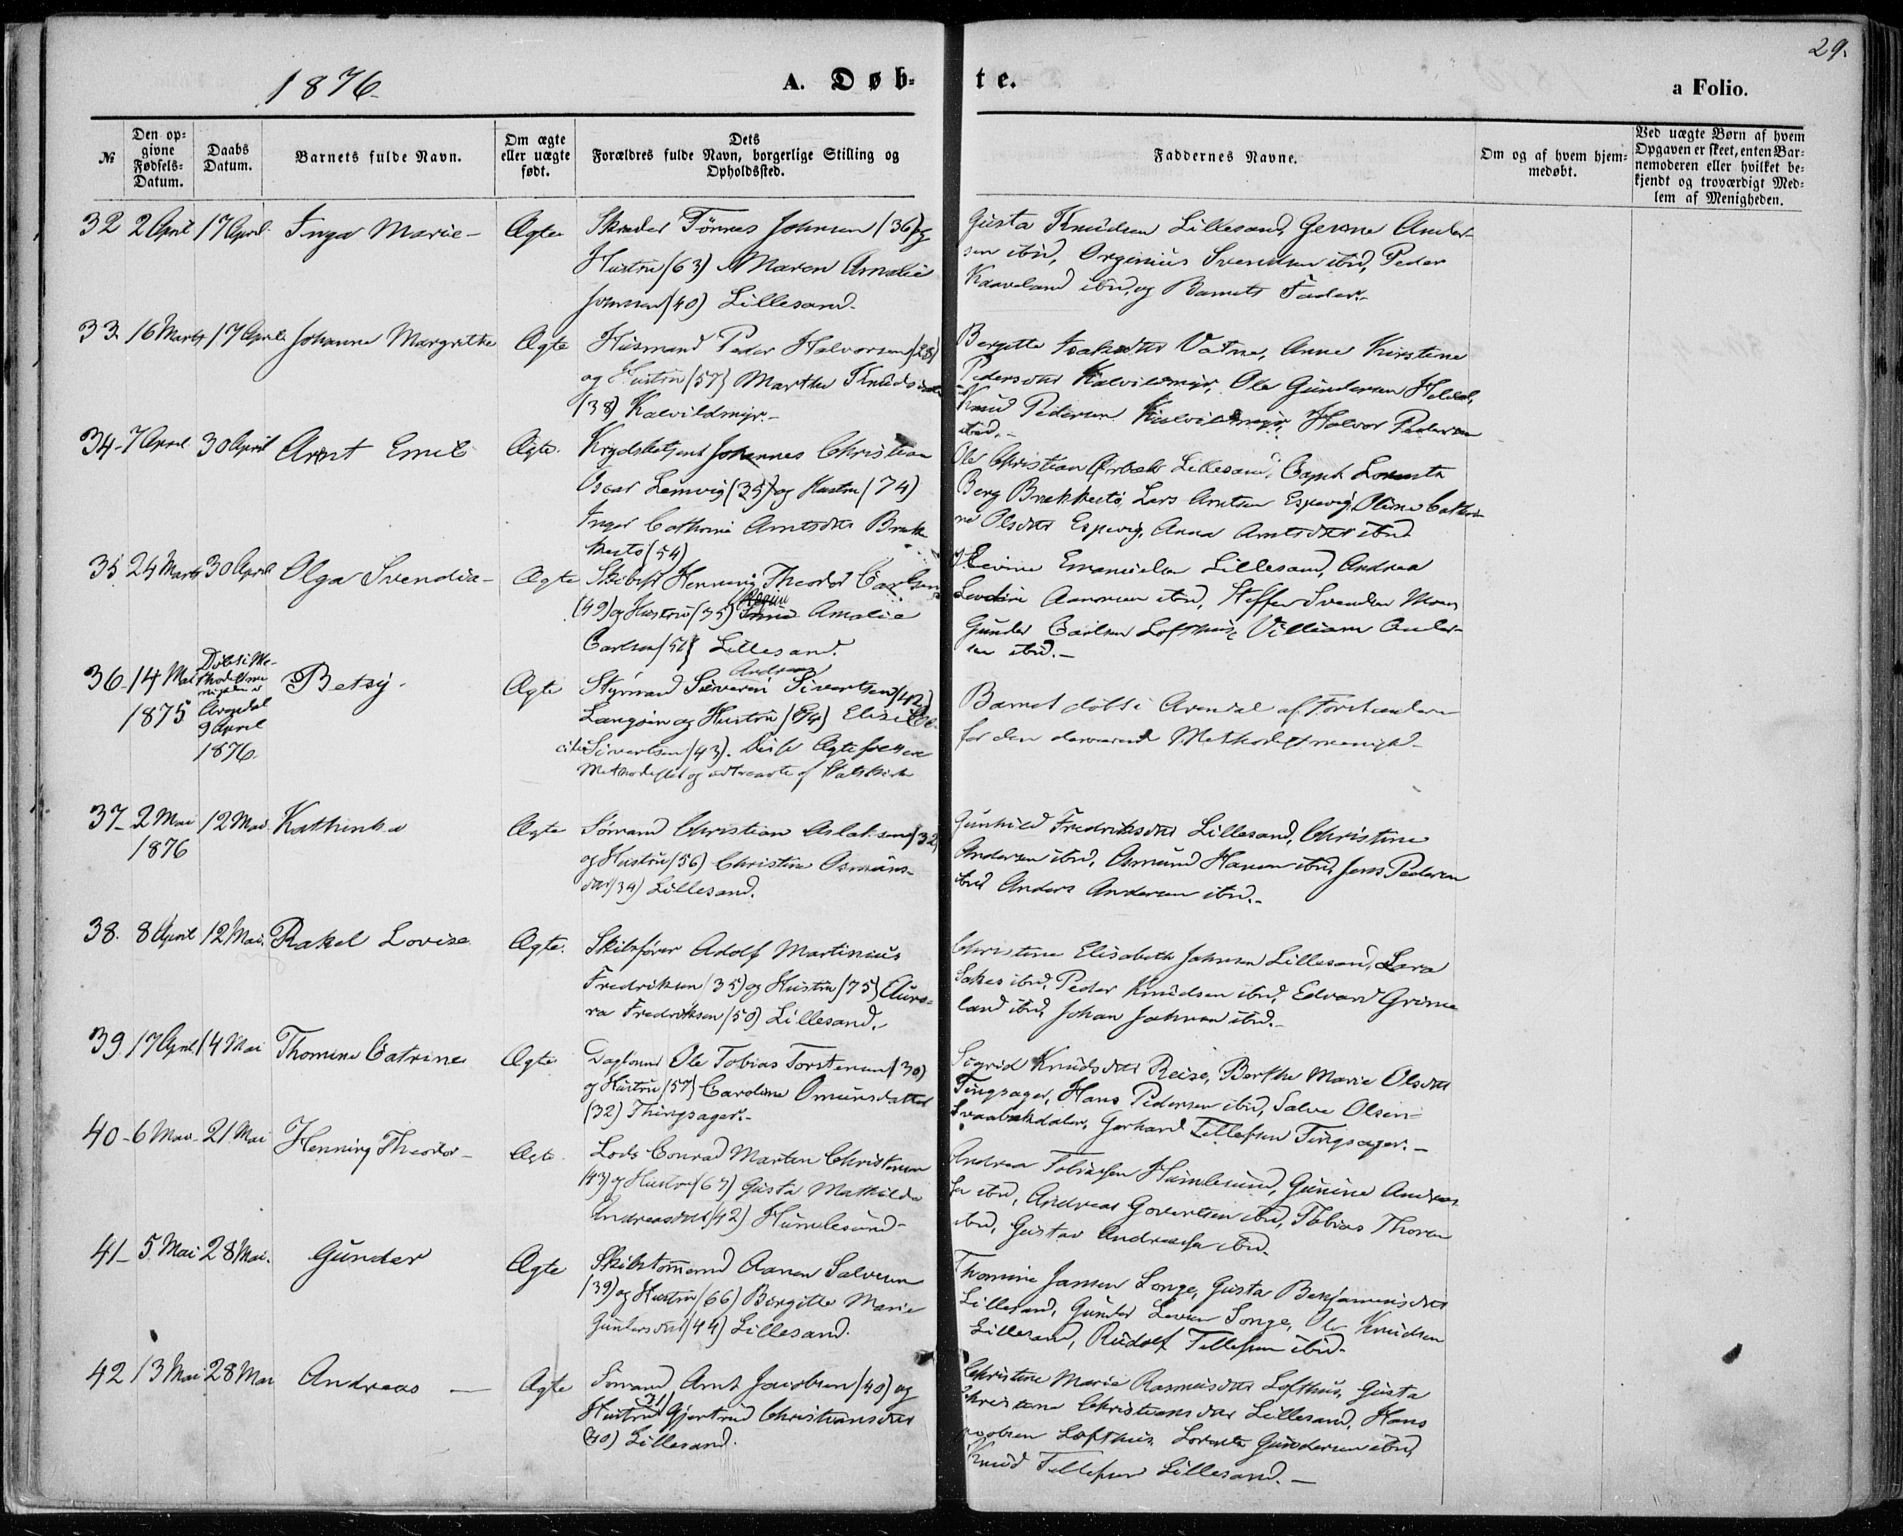 29.
1876
A. Døb-
te.
a Folio.
№
Den op-
givne
Fødsels-
Datum.
Daabs
Datum.
Barnets fulde Navn.
Om ægte
eller uægte
født.
Dets
Forældres fulde Navn, borgerlige Stilling og
Opholdssted.
Faddernes Navne.
Om og af hvem hjem-
medøbt.
Ved uægte Børn af hvem
Opgaven er skeet, enten Bar-
nemoderen eller hvilket be-
kjendt og troværdigt Med-
lem af Menigheden.
32 2 April 17 April. Inga Marie - Ægte
Skræder Tønnes Johnsen (36) og
Hustru (63) Maren Amalie
Johnsen (40) Lillesand.
Gusta Knudsen Lillesand, Ander-
sen ibid, Orginius Svendsen ibid, Peder
Kaaveland ibid, og Barnets Fader.
33. 16 Marts 17 April Johanne Margrethe Ægte
Husmand Peder Halvorsen (28)
og Hustru (57) Marthe Knudsdatter
(38) Kalvildmyr.-
Bergitte Isaksdtr Vatne, Anne Kirstine
Pedersdtr Kalvildmyr, Ole Gundersen
Knud Pedersen Kalvildmyr, Halvor Pedersen
ibid.-
34- 7 April 30 April Arnt Emil Ægte.
Krydsbetjent Johannes Christian
Oscar Lemvig (35) og Hustru (74)
Inger Cathrine Arntsdtr Bræk-
kestø (54)
Ole Christian Lillesand, Capt.
Berg Brekkestø, Lars Arntsen Espevig, Oline Cathri-
ne Olsdtr Espevig, Anna Arntsdtr ibid.
35. 24 Marts 30 April Olga Svendia- Ægte
Skibsf Henning Theodor Carlsen
(49) og Hustru (35) Amalie
Carlsen (52) Lillesand.
Emanuelsen Lillesand, Andrea
ibid, Steffen Svendsen
Gunder Carlsen Lofthus, Villiam Ander-
sen ibid.-
36- 14 Mai
1875
Døbt i Me-
thodistme-
nigheden i
Arendal
9 April
1876.
Betsy. Ægte
Styrmand Sivertsen (42)
og Hustru Elise
Sivertsen (43). Disse Ægtefolk ere
Methodister og udtraadte af Statskirken
Barnet døbt i Arendal af Forstanderen
for den derværende Methodistmenighed-
37- 2 Mai
1876
12 Mai. Kathinka Ægte
Sømand Christian Aslaksen (32)
og Hustru (56) Christine Osmuns-
dtr (39) Lillesand.
Gunhild Fredriksdtr Lillesand, Christine
Andersen ibid, Osmund Hansen ibid, Jens Pedersen
ibid Anders Andersen ibid.-
38. 8 April 12 Mai. Rakel Lovise. Ægte.
Skibsfører Adolf Martinius
Fredriksen (35) og Hustru (75) Auro-
ra Fredriksen (50) Lillesand.
Christine Elisabeth Johnsen Lillesand, Lara
ibid, Peder Knudsen ibid, Edvard Grime-
land ibid, Johan Johnsen ibid.-
39 17 April 14 Mai Thomine Catrine Ægte
Daglønner Ole Tobias Torstensen (30)
og Hustru (57) Caroline Omunsdatter
(32) Thingsager.-
Sigrid Knudsdtr Reise, Berthe Marie Olsdtr
Tingsager, Hans Pedersen ibid, Salve Olsen
Gerhard Tellefsen Tingsager.-
40- 6 Mai 21 Mai Henning Theodor- Ægte.
Lods Conrad Marten Christensen
(43) og Hustru (67) Gusta Mathilde
Andreasdtr (42) Humlesund-
Andrea Tobiassen Humlesund, Gunine Andreas-
sen ibid, Andreas Govertsen ibid, Tobias
ibid, Gustav Andreassen ibid-
41- 5 Mai 28 Mai. Gunder Ægte
Skibstømmermd Aanen Salvesen
(39) og Hustru (66) Birgitte Marie
Gundersdtr (44) Lillesand.
Thomine Jansen Songe, Gusta Benjaminsdtr
Lillesand, Gunder Songe, Ole Knudsen
Lillesand, Rudolf Tellefsen ibid-
42 13 Mai 28 Mai Andreas - Ægte
Sømand Arnt Jacobsen (40) og
Hustru (71) Gjertrud Christiansdtr
(40) Lillesand.
Christine Marie Rasmusdtr Lofthus, Gusta
Christine Christiansdtr Lillesand, Hans
Jacobsen Lofthus, Gundersen ibid
Knud Tellefsen Lillesand.-